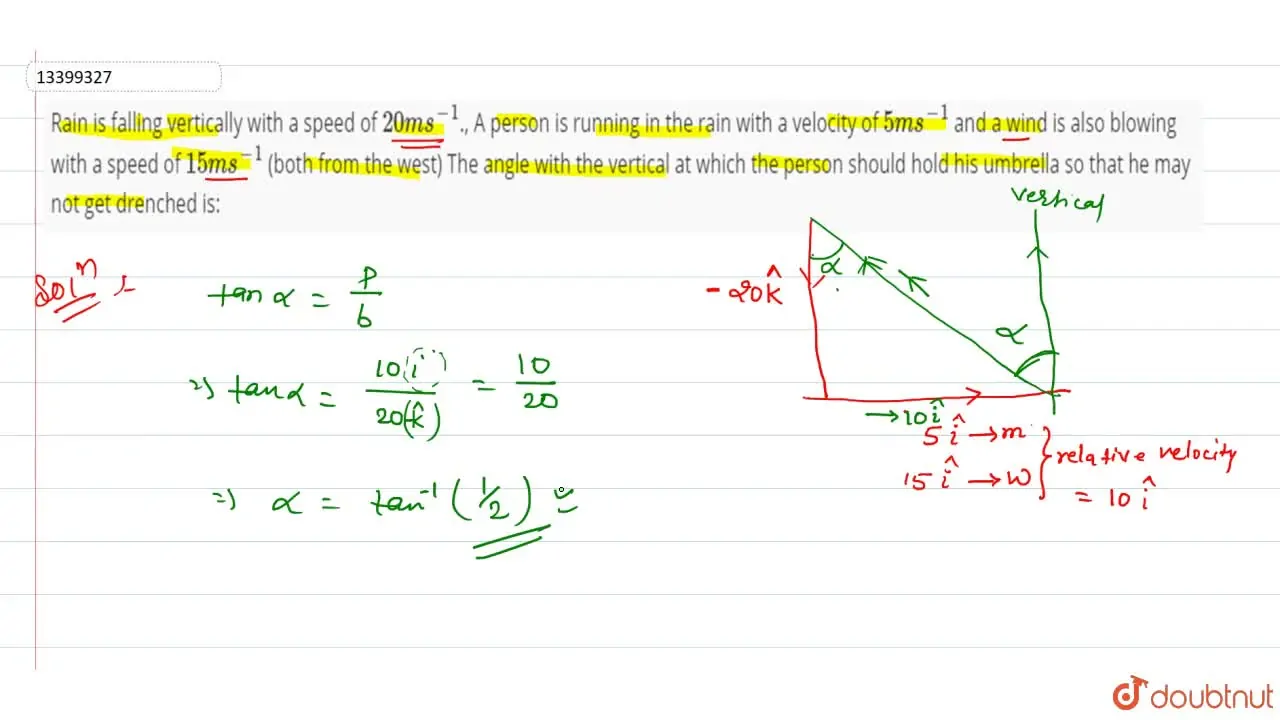 13399327
Rain is falling vertically with a speed of 20ms⁻¹., A person is running in the rain with a velocity of 5ms⁻¹ and a wind is also blowing
with a speed of 15ms⁻¹ (both from the west) The angle with the vertical at which the person should hold his umbrella so that he may
not get drenched is:
vertical
Solⁿ :-
tan α = p/b
α
-20k̂
α
⇒ tan α = 10(î)/20(k̂) = 10/20
→10î
5î → m
15î → w
relative velocity
= 10î
⇒ α = tan⁻¹(1/2)
doubtnut